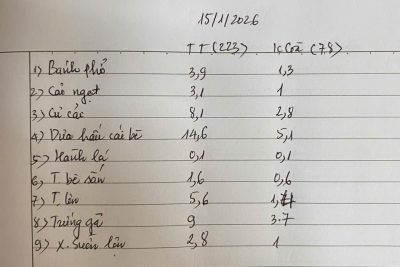 15/1/2026
TT (223) (78)
1) Bánh phở 3,9 1,3
2) Cải ngọt 3,1 1
3) Củ các 8,1 2,8
4) Dưa hấu cải bẽ 14,6 5,1
5) Hành lá 0,1 0,1
6) T. bò sẵn 1,6 0,6
7) T. lợn 5,6
8) Trứng gà 9 3.7
9) X. Sườn lợn 2,8 1